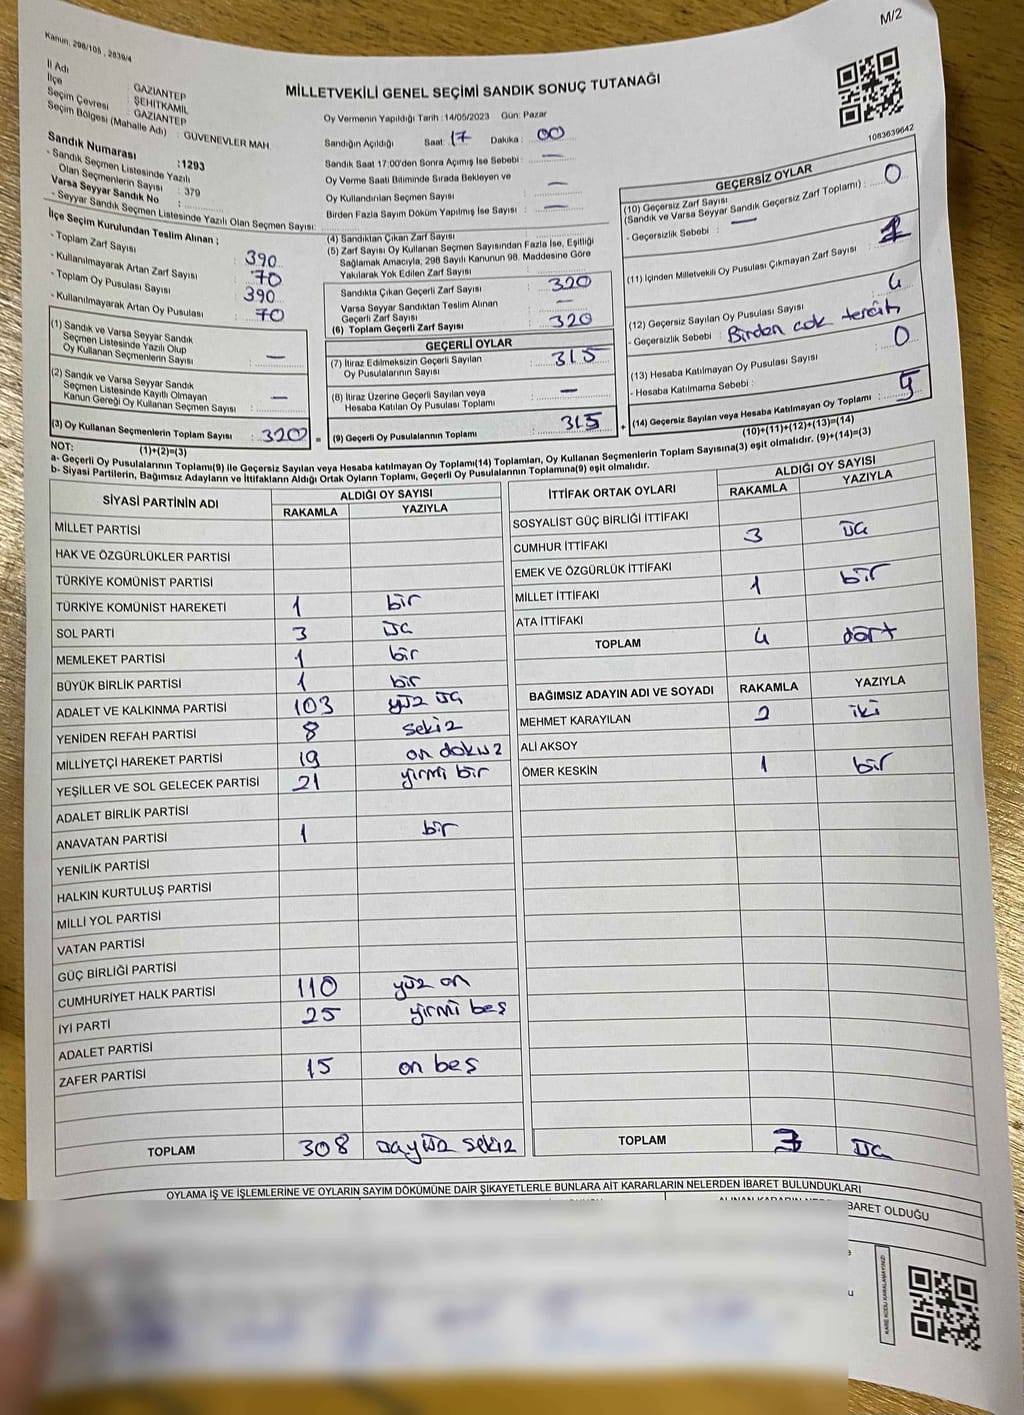 M/2
Kanun; 298/105 , 2839/4
MİLLETVEKİLİ GENEL SEÇİMİ SANDIK SONUÇ TUTANAĞI
İl Adı : GAZİANTEP
İlçe : ŞEHİTKAMİL
Seçim Çevresi : GAZİANTEP
Seçim Bölgesi (Mahalle Adı) : GÜVENEVLER MAH.
Sandık Numarası : 1293
- Sandık Seçmen Listesinde Yazılı
Olan Seçmenlerin Sayısı : 379
Varsa Seyyar Sandık No :
- Seyyar Sandık Seçmen Listesinde Yazılı Olan Seçmen Sayısı:
Oy Vermenin Yapıldığı Tarih : 14/05/2023 Gün: Pazar
Sandığın Açıldığı Saat: 17 Dakika : 00
Sandık Saat 17:00'den Sonra Açımış İse Sebebi : —
Oy Verme Saati Bitiminde Sırada Bekleyen ve
Oy Kullandırılan Seçmen Sayısı : —
Birden Fazla Sayım Döküm Yapılmış İse Sayısı : —
1083639642
İlçe Seçim Kurulundan Teslim Alınan ;
- Toplam Zarf Sayısı : 390
- Kullanılmayarak Artan Zarf Sayısı : 70
- Toplam Oy Pusulası Sayısı : 390
- Kullanılmayarak Artan Oy Pusulası : 70
(1) Sandık ve Varsa Seyyar Sandık
Seçmen Listesinde Yazılı Olup
Oy Kullanan Seçmenlerin Sayısı : —
(2) Sandık ve Varsa Seyyar Sandık
Seçmen Listesinde Kayıtlı Olmayan
Kanun Gereği Oy Kullanan Seçmen Sayısı : —
(3) Oy Kullanan Seçmenlerin Toplam Sayısı : 320 =
(1)+(2)=(3)
(4) Sandıktan Çıkan Zarf Sayısı
(5) Zarf Sayısı Oy Kullanan Seçmen Sayısından Fazla İse, Eşitliği
Sağlamak Amacıyla, 298 Sayılı Kanunun 98. Maddesine Göre
Yakılarak Yok Edilen Zarf Sayısı :
Sandıkta Çıkan Geçerli Zarf Sayısı : 320
Varsa Seyyar Sandıktan Teslim Alınan
Geçerli Zarf Sayısı : —
(6) Toplam Geçerli Zarf Sayısı : 320
GEÇERLİ OYLAR
(7) İtiraz Edilmeksizin Geçerli Sayılan
Oy Pusulalarının Sayısı : 315
(8) İtiraz Üzerine Geçerli Sayılan veya
Hesaba Katılan Oy Pusulası Toplamı : —
(9) Geçerli Oy Pusulalarının Toplamı : 315 +
GEÇERSİZ OYLAR
(10) Geçersiz Zarf Sayısı
(Sandık ve Varsa Seyyar Sandık Geçersiz Zarf Toplamı) : 0
- Geçersizlik Sebebi : —
(11) İçinden Milletvekili Oy Pusulası Çıkmayan Zarf Sayısı : 1
(12) Geçersiz Sayılan Oy Pusulası Sayısı : 4
- Geçersizlik Sebebi : Birden çok tercih
(13) Hesaba Katılmayan Oy Pusulası Sayısı : 0
- Hesaba Katılmama Sebebi :
(14) Geçersiz Sayılan veya Hesaba Katılmayan Oy Toplamı : 5
(10)+(11)+(12)+(13)=(14)
NOT:
a- Geçerli Oy Pusulalarının Toplamı(9) ile Geçersiz Sayılan veya Hesaba katılmayan Oy Toplamı(14) Toplamları, Oy Kullanan Seçmenlerin Toplam Sayısına(3) eşit olmalıdır. (9)+(14)=(3)
b- Siyasi Partilerin, Bağımsız Adayların ve İttifakların Aldığı Ortak Oyların Toplamı, Geçerli Oy Pusulalarının Toplamına(9) eşit olmalıdır.
SİYASİ PARTİNİN ADI ALDIĞI OY SAYISI
RAKAMLA YAZIYLA
MİLLET PARTİSİ
HAK VE ÖZGÜRLÜKLER PARTİSİ
TÜRKİYE KOMÜNİST PARTİSİ
TÜRKİYE KOMÜNİST HAREKETİ 1 bir
SOL PARTİ 3 üç
MEMLEKET PARTİSİ 1 bir
BÜYÜK BİRLİK PARTİSİ 1 bir
ADALET VE KALKINMA PARTİSİ 103 yüz üç
YENİDEN REFAH PARTİSİ 8 sekiz
MİLLİYETÇİ HAREKET PARTİSİ 19 on dokuz
YEŞİLLER VE SOL GELECEK PARTİSİ 21 yirmi bir
ADALET BİRLİK PARTİSİ
ANAVATAN PARTİSİ 1 bir
YENİLİK PARTİSİ
HALKIN KURTULUŞ PARTİSİ
MİLLİ YOL PARTİSİ
VATAN PARTİSİ
GÜÇ BİRLİĞİ PARTİSİ
CUMHURİYET HALK PARTİSİ 110 yüz on
İYİ PARTİ 25 yirmi beş
ADALET PARTİSİ
ZAFER PARTİSİ 15 on beş
TOPLAM 308 üçyüz sekiz
İTTİFAK ORTAK OYLARI ALDIĞI OY SAYISI
RAKAMLA YAZIYLA
SOSYALİST GÜÇ BİRLİĞİ İTTİFAKI
CUMHUR İTTİFAKI 3 üç
EMEK VE ÖZGÜRLÜK İTTİFAKI
MİLLET İTTİFAKI 1 bir
ATA İTTİFAKI
TOPLAM 4 dört
BAĞIMSIZ ADAYIN ADI VE SOYADI RAKAMLA YAZIYLA
MEHMET KARAYILAN 2 iki
ALİ AKSOY
ÖMER KESKİN 1 bir
TOPLAM 3 üç
OYLAMA İŞ VE İŞLEMLERİNE VE OYLARIN SAYIM DÖKÜMÜNE DAİR ŞİKAYETLERLE BUNLARA AİT KARARLARIN NELERDEN İBARET BULUNDUKLARI
BARET OLDUĞU
KARE KODU KARALAMAYINIZ!